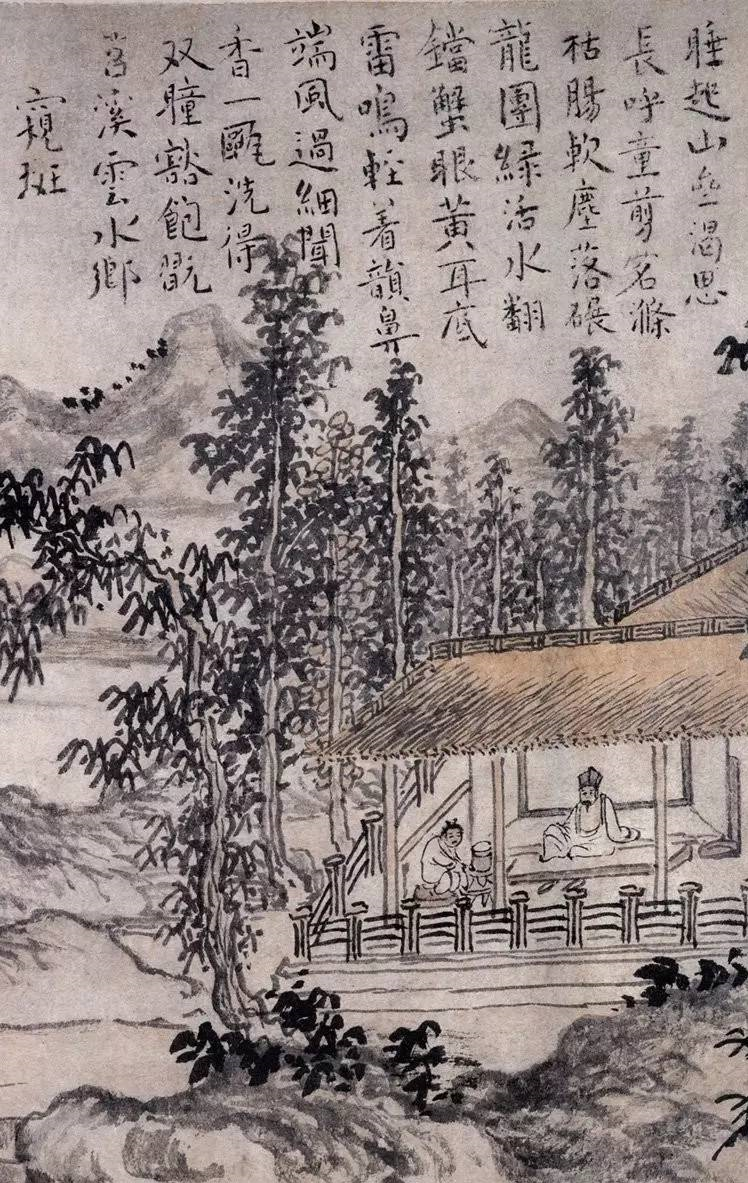 睡起山亝渴思
長呼童剪茗滌
枯腸軟塵落碾
龍團緑活水翻
鐺蟹眼黄耳底
雷鳴輕着韻鼻
端風過細聞
香一甌洗得
双瞳豁飽翫
苕溪雲水鄉
窺班